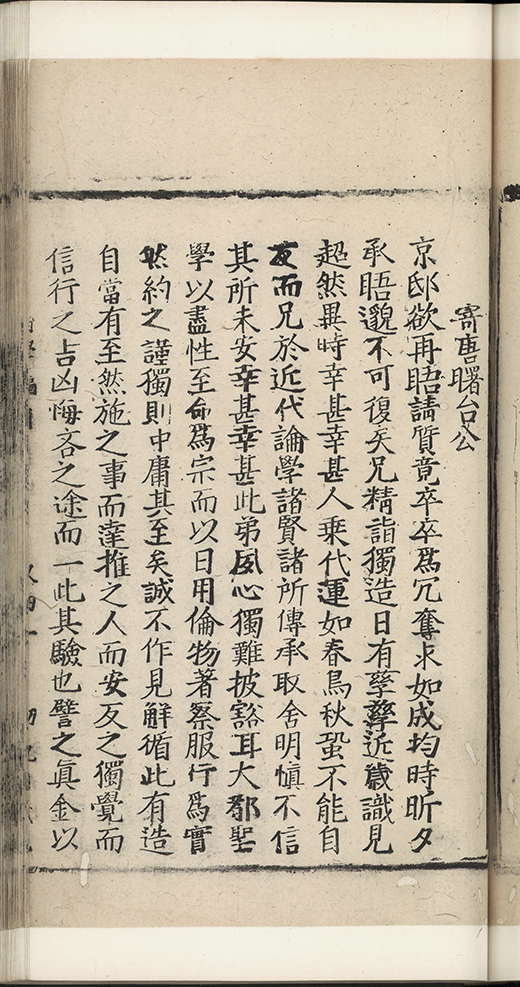 寄唐曙台公
京邸欲再晤請質竟卒卒爲冗奪求如成均時昕夕
承晤邈不可復矣兄精詣獨造日有孳孳近歲識見
超然異時幸甚幸甚人乘代運如春鳥秋蛩不能自
而兄於近代論學諸賢諸所傳承取舍明慎不信
其所未安幸甚幸甚此弟夙心獨難披豁耳大都聖
學以盡性至命爲宗而以日用倫物著察服行爲實
然約之謹獨則中庸其至矣誠不作見解循此有造
自當有至然施之事而達推之人而安反之獨覺而
信行之吉凶悔吝之途而一此其驗也譬之眞金以